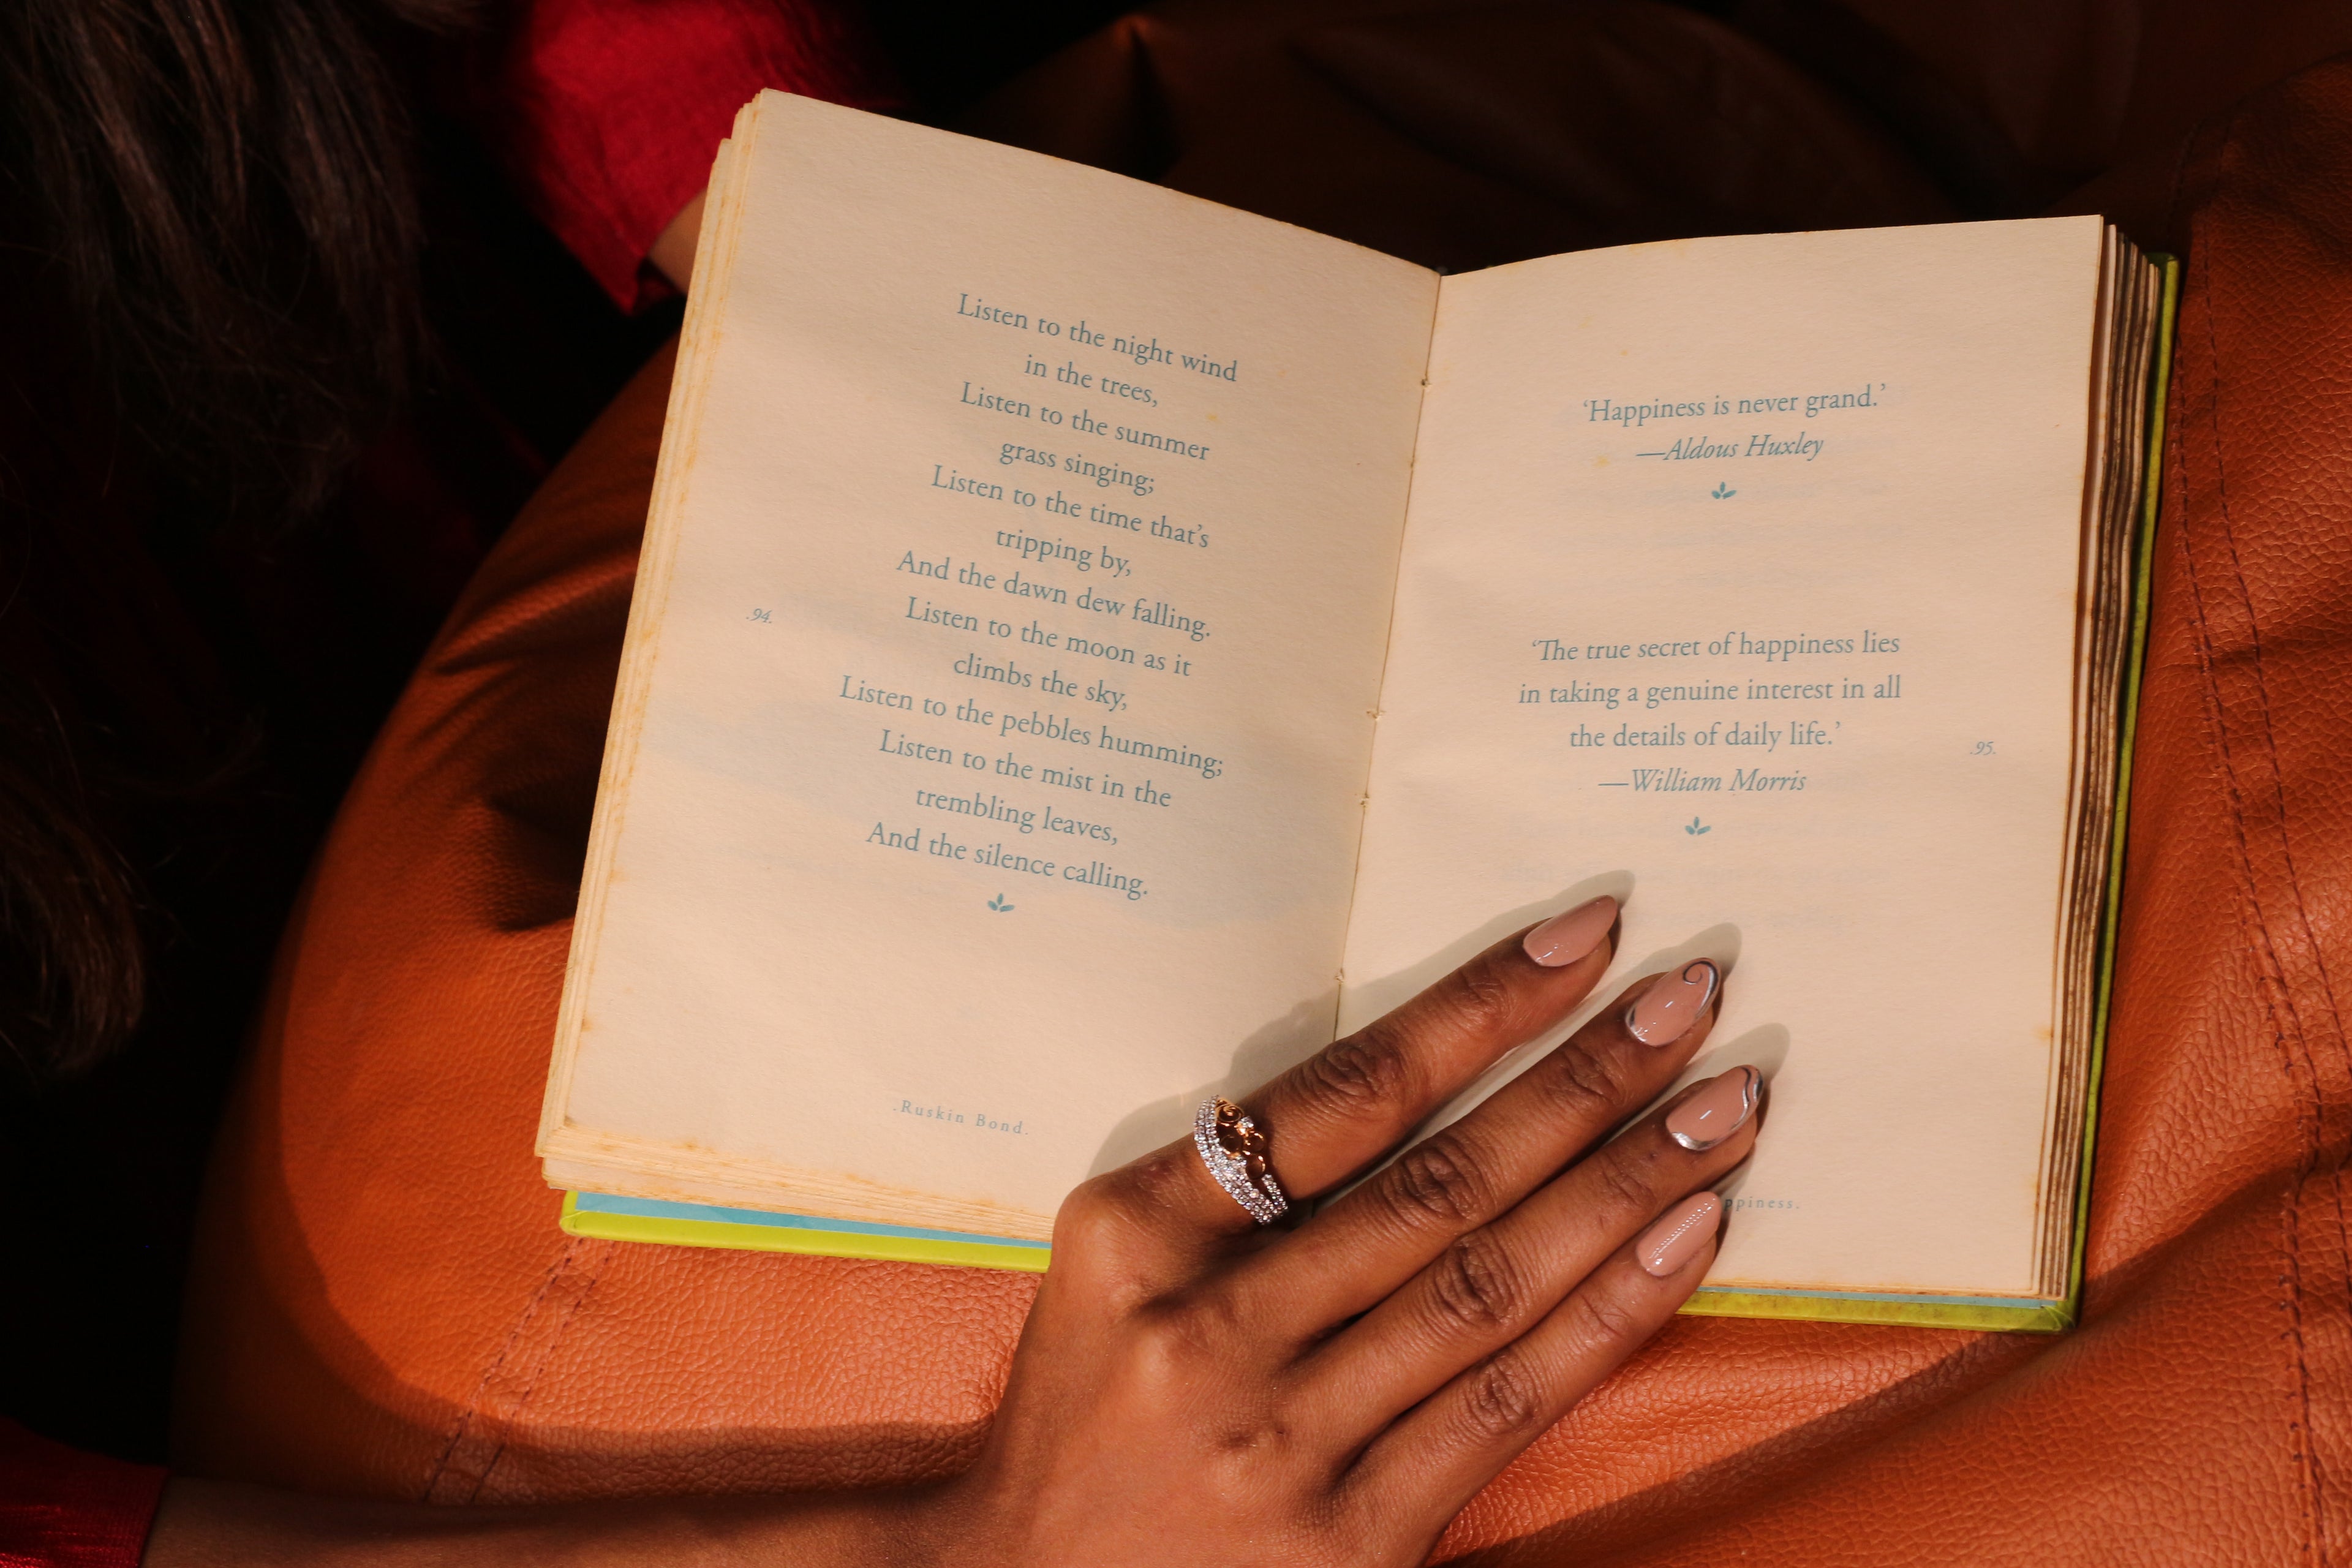 Listen to the night wind
in the trees,
Listen to the summer
grass singing;
Listen to the time that's
tripping by,
And the dawn dew falling.
Listen to the moon as it
climbs the sky,
Listen to the pebbles humming;
Listen to the mist in the
trembling leaves,
And the silence calling.
.94.
.Ruskin Bond.
‘Happiness is never grand.’
—Aldous Huxley
‘The true secret of happiness lies
in taking a genuine interest in all
the details of daily life.’
—William Morris
.95.
ppiness.